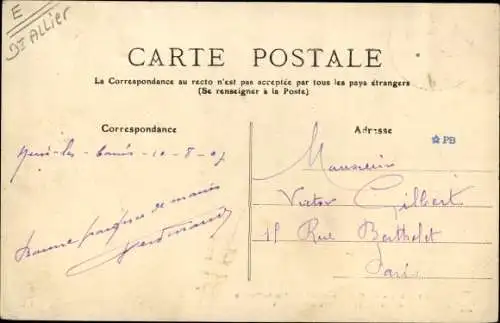 E
Dt Allier
CARTE POSTALE
La Correspondance au recto n'est pas acceptée par tous les pays étrangers
(Se renseigner à la Poste)
Correspondance
Néris-les-Bains 10-8-07
Bonne de
Adresse
PB
Monsieur
Victor Gilbert
Rue Berthollet
Paris